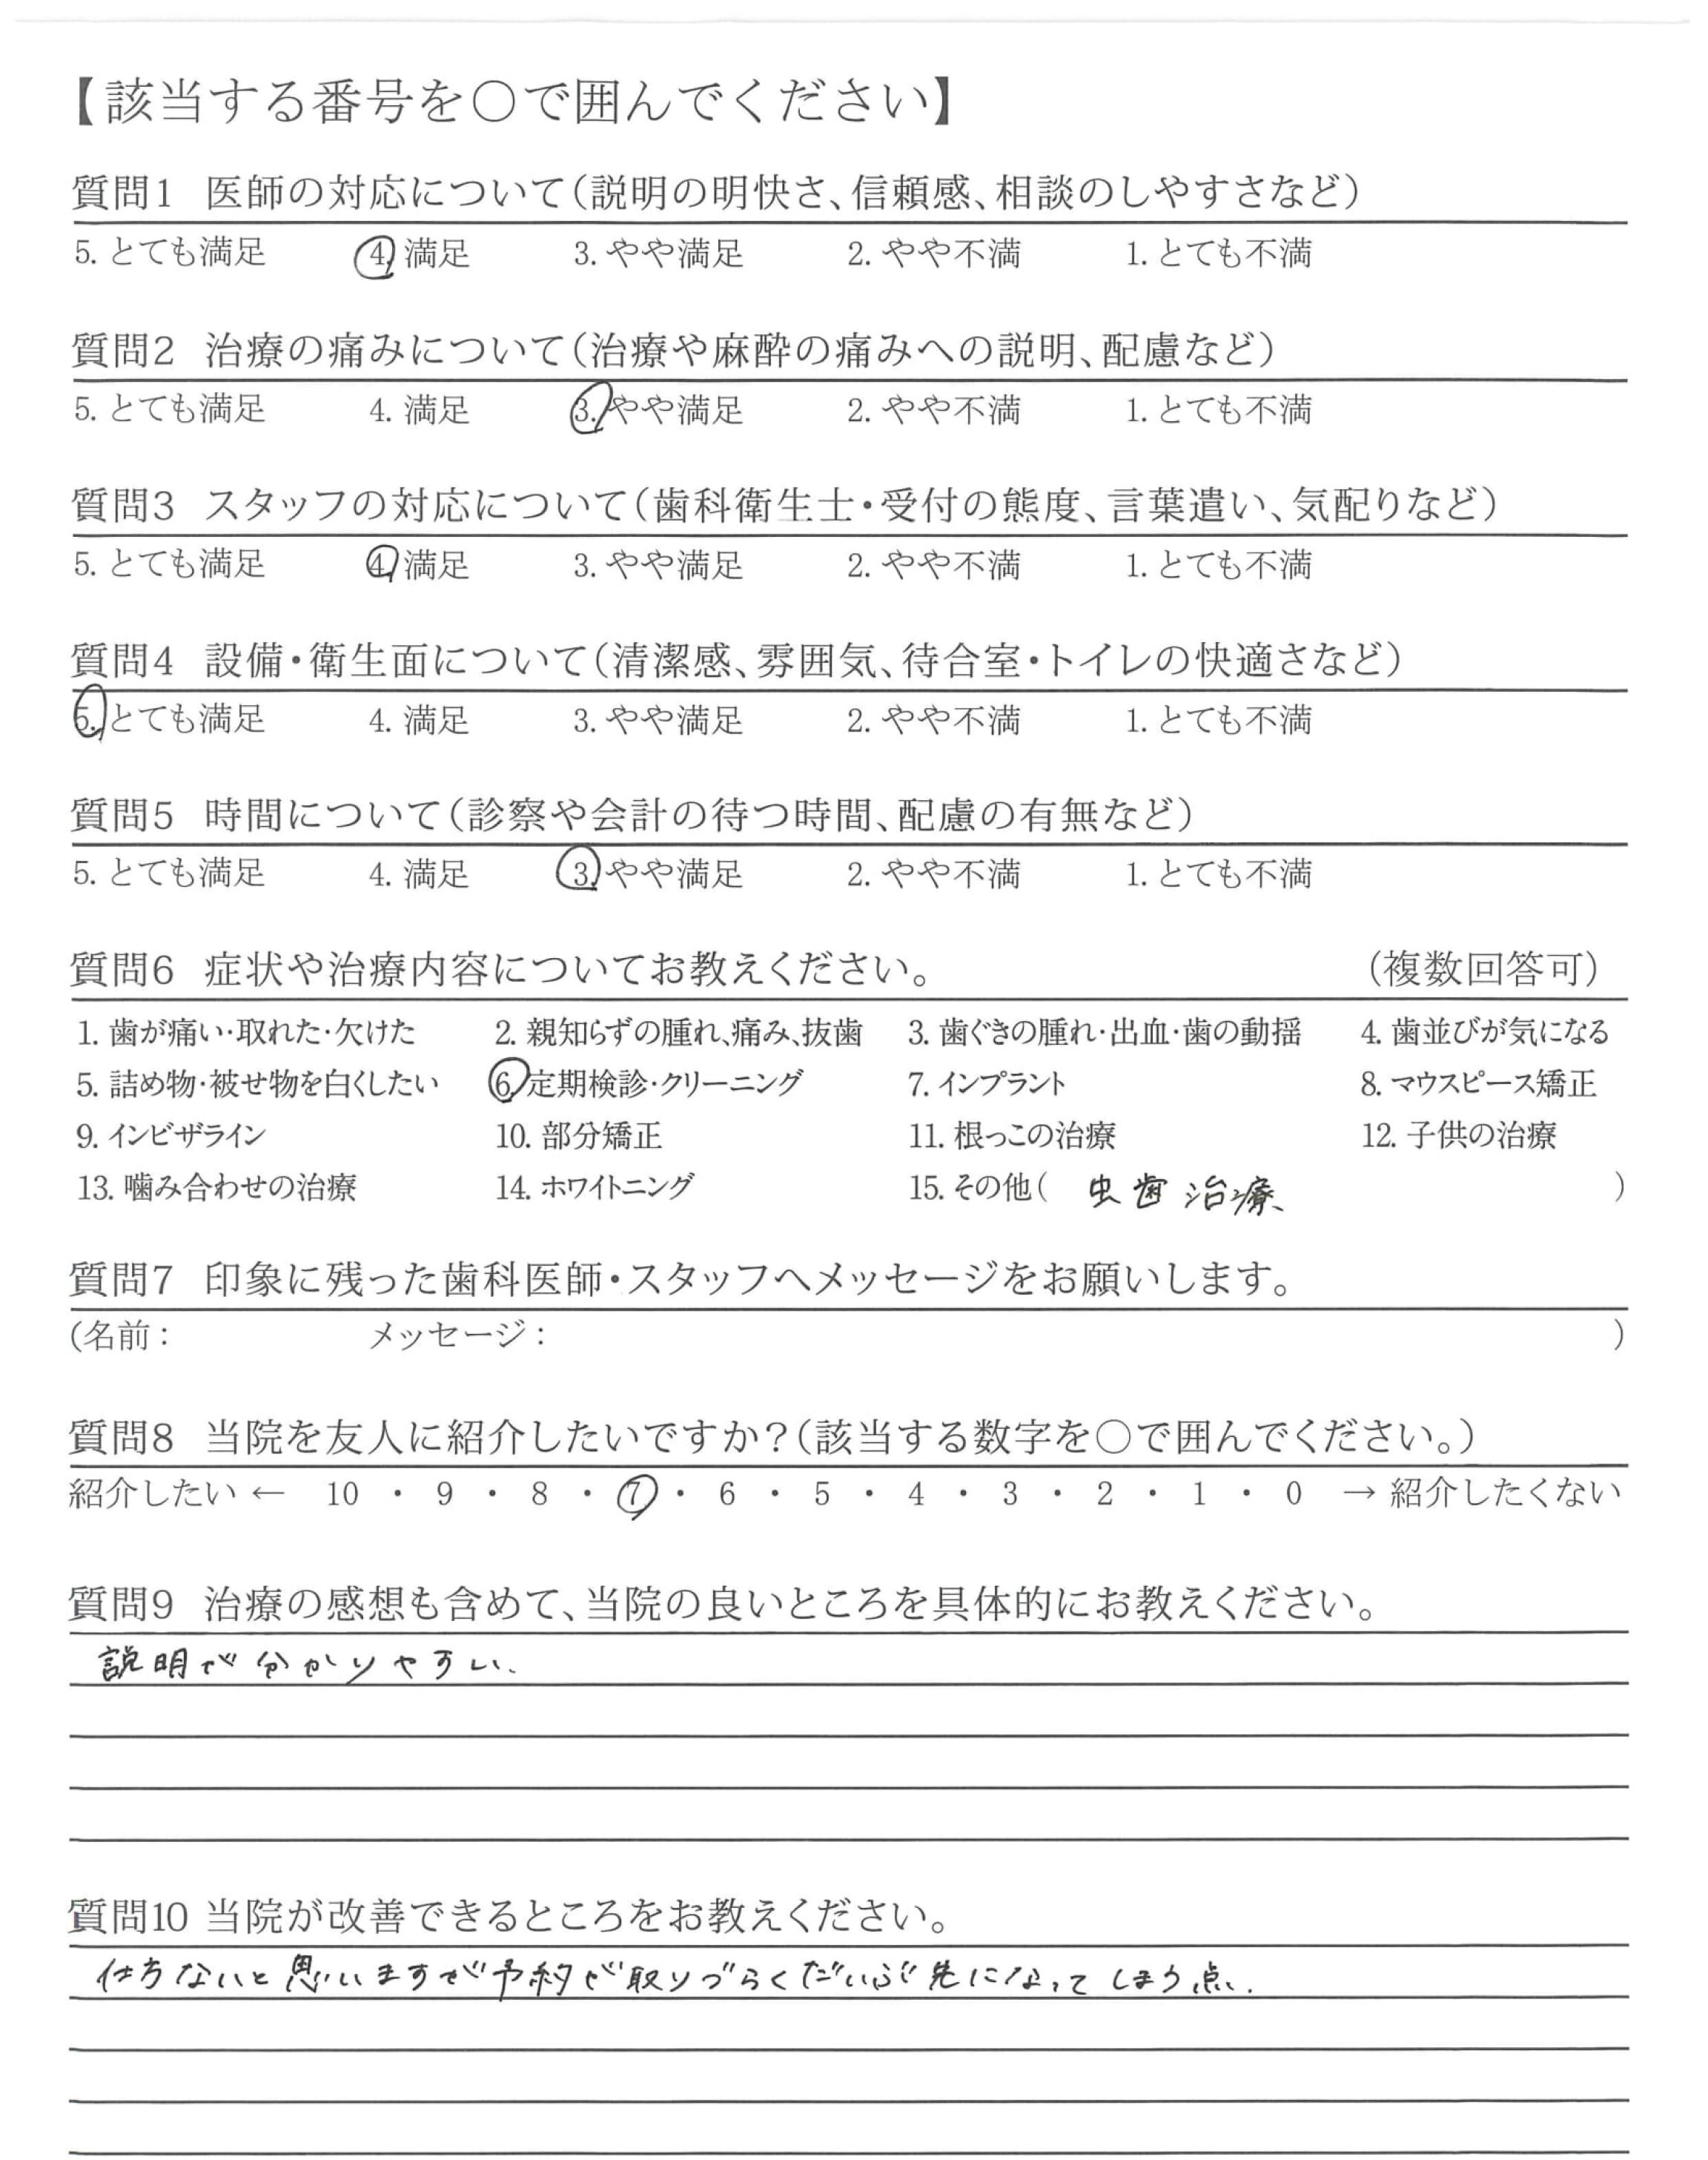 【該当する番号を○で囲んでください】
質問1 医師の対応について(説明の明快さ、信頼感、相談のしやすさなど)
5. とても満足 4. 満足 3. やや満足 2. やや不満 1. とても不満
質問2 治療の痛みについて(治療や麻酔の痛みへの説明、配慮など)
5. とても満足 4. 満足 3. やや満足 2. やや不満 1. とても不満
質問3 スタッフの対応について(歯科衛生士・受付の態度、言葉遣い、気配りなど)
5. とても満足 4. 満足 3. やや満足 2. やや不満 1. とても不満
質問4 設備・衛生面について(清潔感、雰囲気、待合室・トイレの快適さなど)
5. とても満足 4. 満足 3. やや満足 2. やや不満 1. とても不満
質問5 時間について(診察や会計の待つ時間、配慮の有無など)
5. とても満足 4. 満足 3. やや満足 2. やや不満 1. とても不満
質問6 症状や治療内容についてお教えください。 (複数回答可)
1. 歯が痛い・取れた・欠けた 2. 親知らずの腫れ、痛み、抜歯 3. 歯ぐきの腫れ・出血・歯の動揺 4. 歯並びが気になる
5. 詰め物・被せ物を白くしたい 6. 定期検診・クリーニング 7. インプラント 8. マウスピース矯正
9. インビザライン 10. 部分矯正 11. 根っこの治療 12. 子供の治療
13. 噛み合わせの治療 14. ホワイトニング 15. その他( 虫歯治療 )
質問7 印象に残った歯科医師・スタッフへメッセージをお願いします。
(名前: メッセージ: )
質問8 当院を友人に紹介したいですか?(該当する数字を○で囲んでください。)
紹介したい ← 10 ・ 9 ・ 8 ・ 7 ・ 6 ・ 5 ・ 4 ・ 3 ・ 2 ・ 1 ・ 0 → 紹介したくない
質問9 治療の感想も含めて、当院の良いところを具体的にお教えください。
説明が分かりやすい.
質問10 当院が改善できるところをお教えください。
仕方ないと思いますが予約が取りづらくだいぶ先になってしまう点.